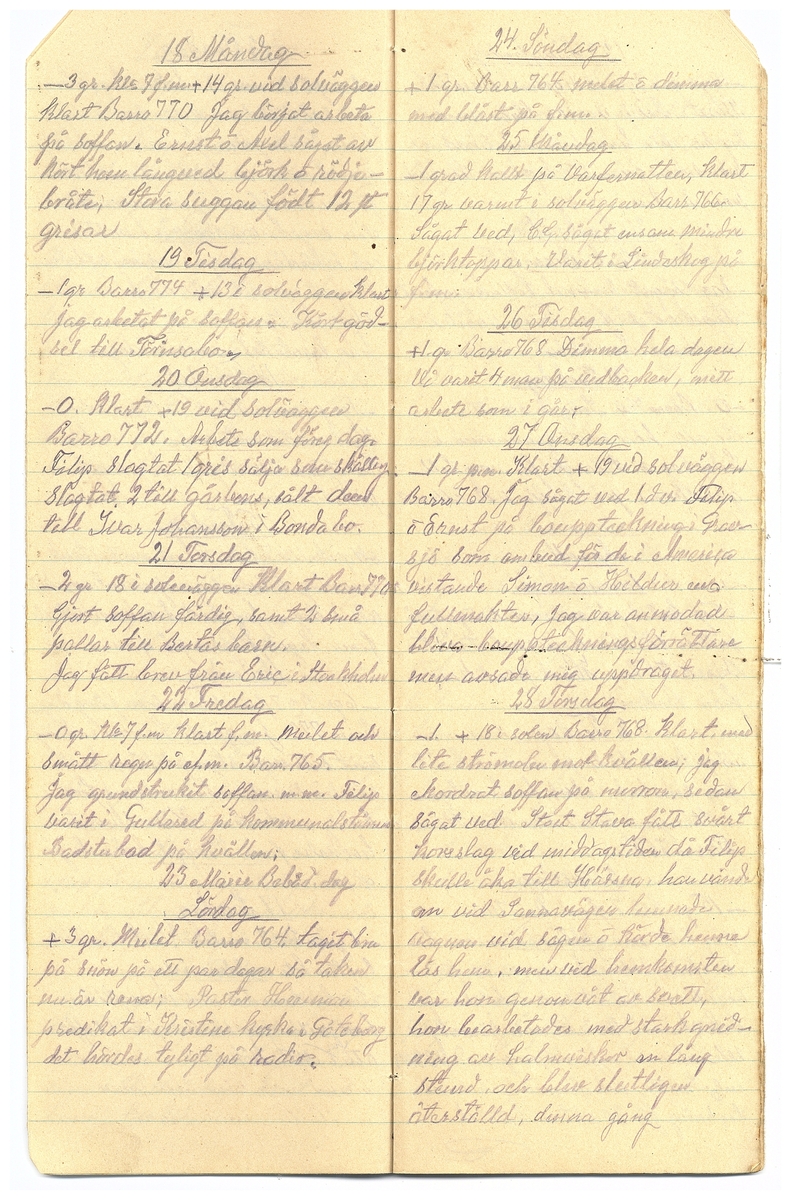 18 Måndag
-3 gr. kl 7 f.m +14 gr. vid solväggen
klart Barro 770 Jag börjat arbeta
på soffan. Ernst o Axel sågat av
kört hem långved björk o rödje-
bråte, Stora suggan född 12 st
grisar
19 Tisdag
-1 gr Barro 774 +13 i solväggen klart
Jag arbetat på soffan. Kört göd-
sel till Törnsabo.
20 Onsdag
-0. Klart +19 vid solväggen
Barro 772. Arbete som föreg dag.
Filip slagtat 1 gris sälja som
slagtat 2 till gårdens, sålt den
till Ivar Johansson i Bondabo.
21 Torsdag
-2 gr 18 i solväggen Klart Barr 770
Gjort soffan färdig, samt 2 små
pallar till Bertas barn.
Jag fått brev från Eric i Stockholm
22 Fredag
-0 gr kl 7 f.m klart f.m. Mulet och
smått regn på e.m. Bar. 765.
Jag grundstrukit soffan m.m. Filip
varit i Gullered på kommunalstämma
Badstubad på kvällen;
23 Marie Bebåd. dag
Lördag
+3 gr. Mulet Barro 764 tagit bra
på snön på ett par dagar så taken
nu är rena; Pastor
predikat i Kristine kyrka i Göteborg
det hördes tyligt på radio.
24. Söndag
+1 gr. Barr 764 mulet o dimma
med blåst på f.m.
25 Måndag
-1 grad kallt på Vårfernatten, klart
17 gr varmt i solväggen Barr 766.
Sågat ved, C.G. sågat ensam mindre
björktoppar. Varit i Lindeskog på
f.m.
26 Tisdag
+1 gr Barro 768 Dimma hela dagen
Vi varit 4 man på vedbacken, mitt
arbete som i går,
27 Onsdag
-1 gr mo. Klart +19 vid solväggen
Barro 768. Jag sågat ved 1 d.v. Filip
o Ernst på bouppteckning i
sjö som ombud för de i America
vistande Simon o Hildur enl
fullmakter, Jag var anmodad
bouppteckningsförrättare
men avsade mig uppdraget.
28 Torsdag
-1. +18 i solen Barro 768. Klart, med
lite strömoln mot kvällen; jag
skordrat soffan på morron, sedan
sågat ved. Stort Stava fått svårt
korsslag vid middagstiden då Filip
skulle åka till Hössna, han vände
om vid Sannavägen lemnade
vagnen vid sågen o körde henne
lös hem, men vid hemkomsten
var hon genomvåt av svett,
hon bearbetades med stark gnid-
ning av halmviskor en lång
stund och blev slutligen
återställd, denna gång